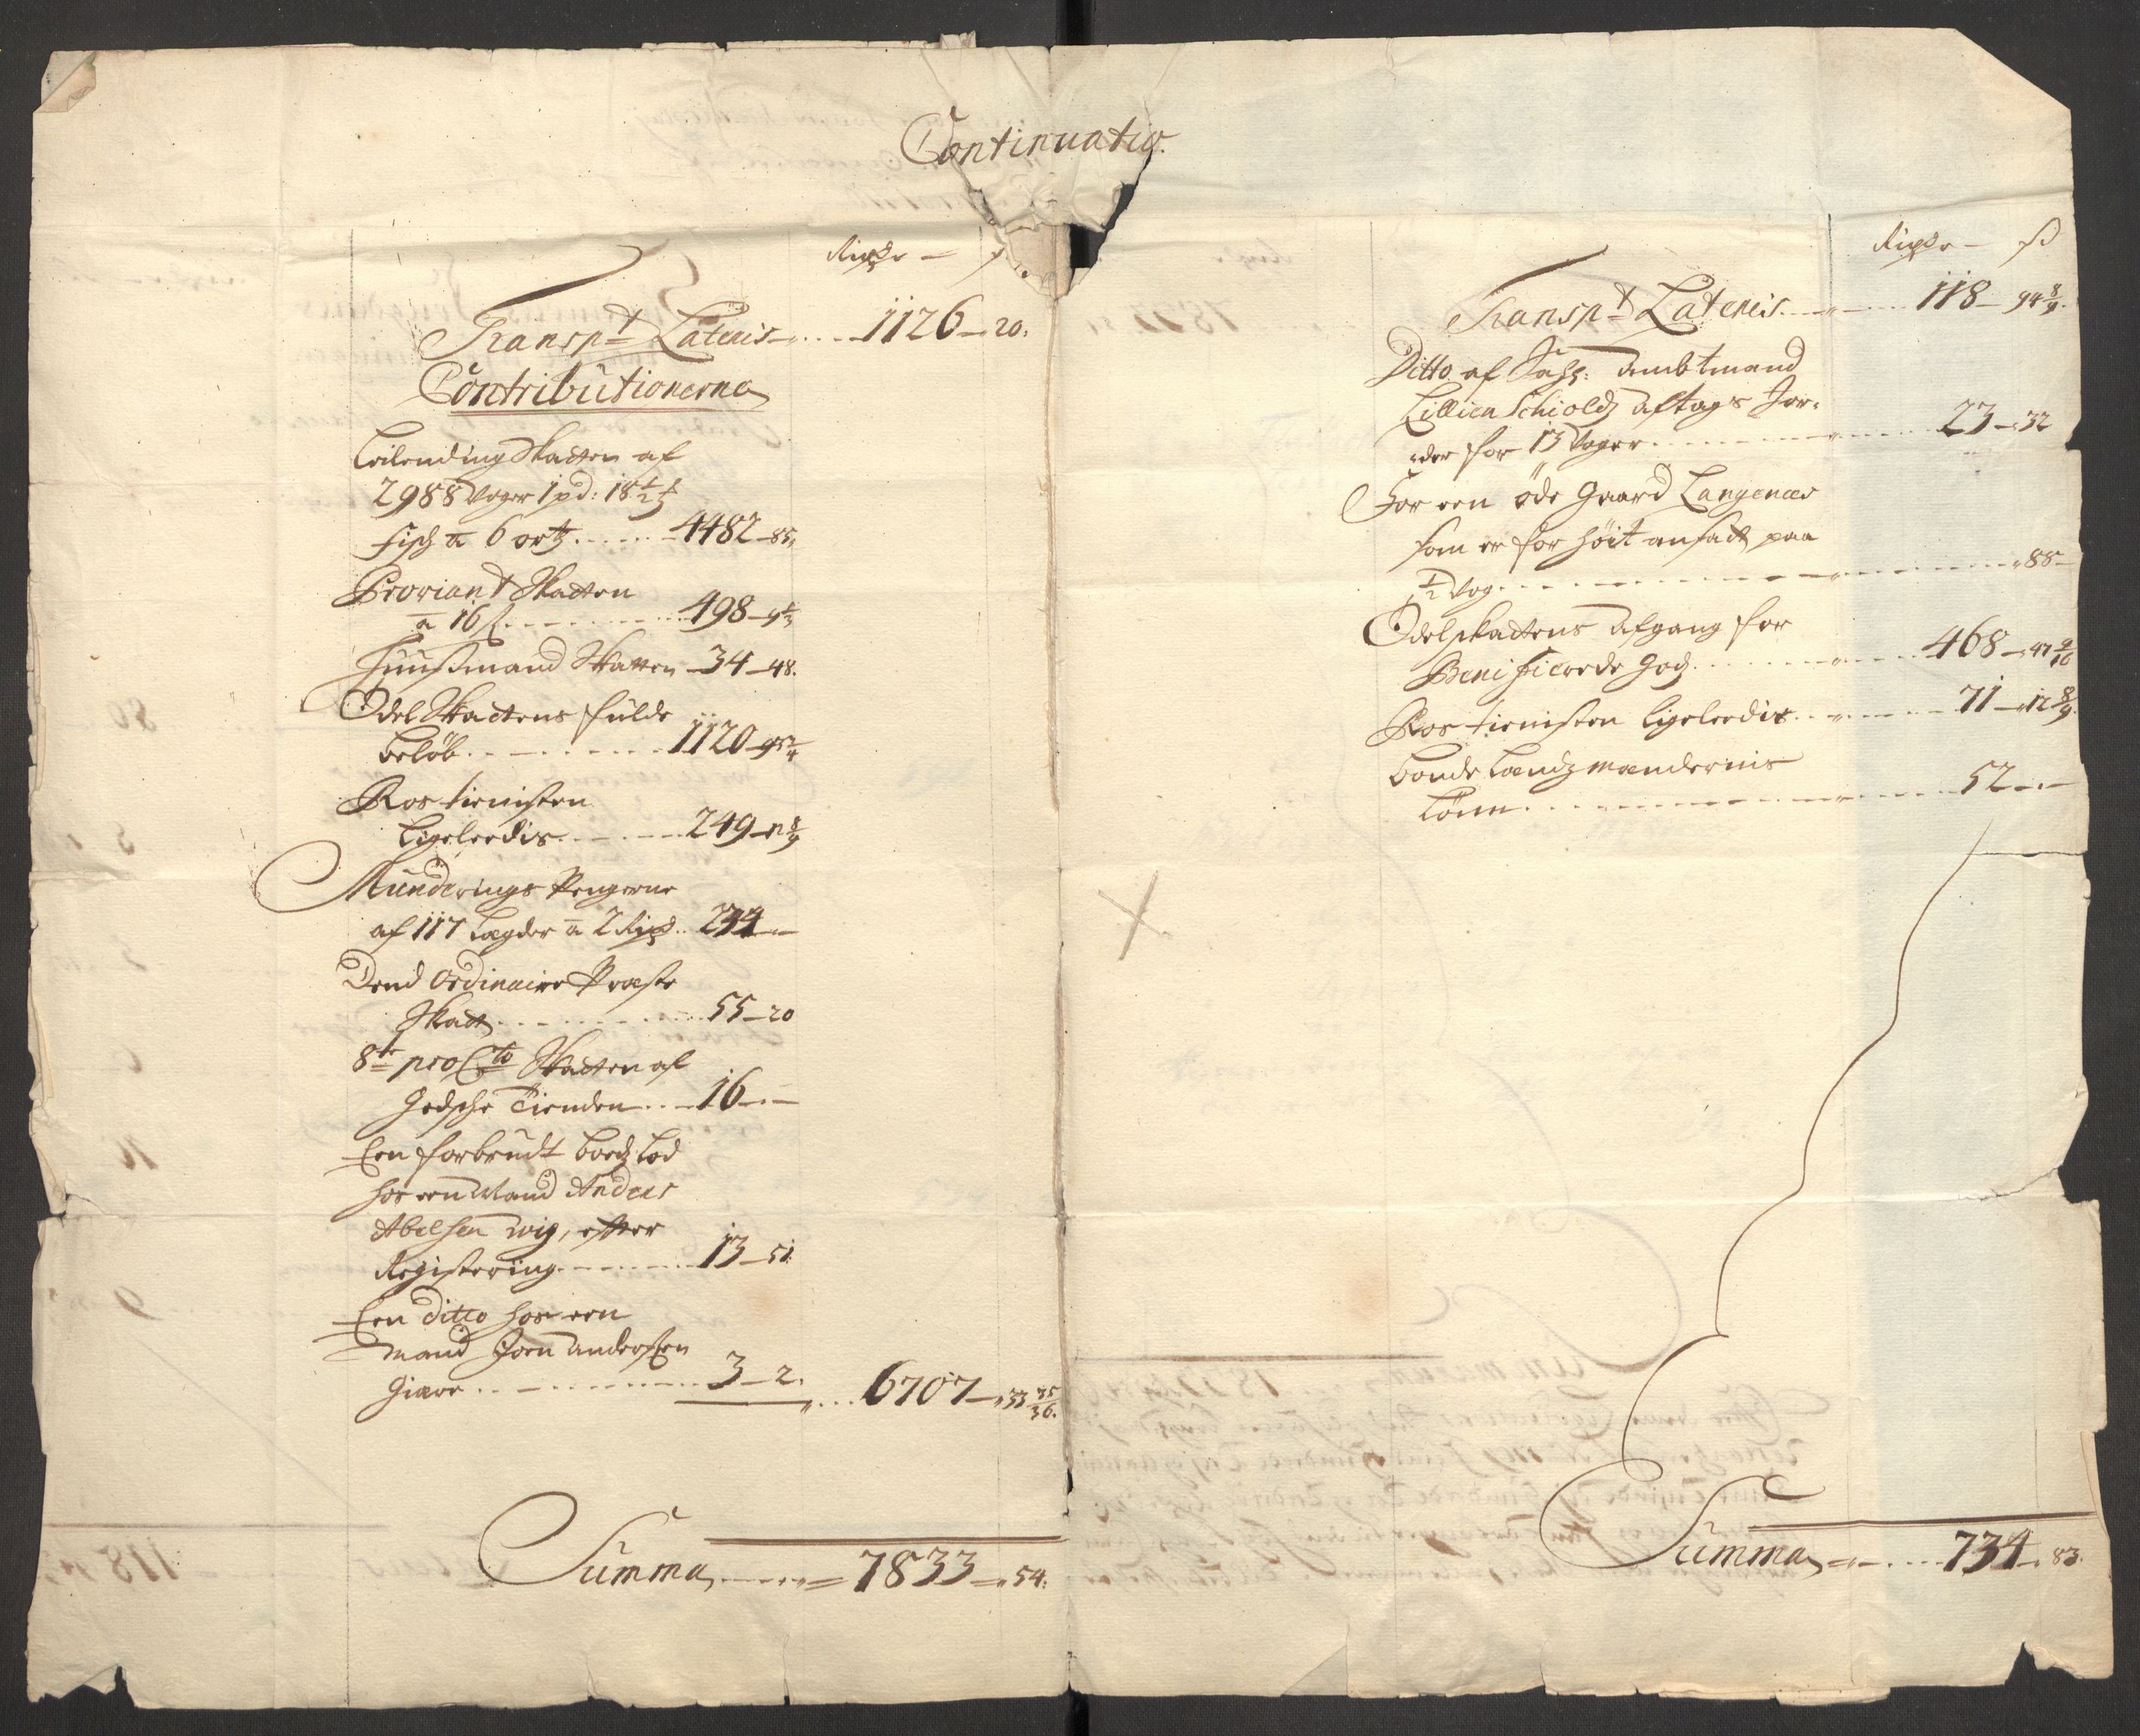 Continuatio.
Rixdr — ß
Transpt Lateris — 1126 — 20.
Contributionerne
Leilending Skatten af
2988 Voger 1 pd: 18 1/2
Fisch a 6 ort — 4482 — 85
Proviant Skatten
a 16 ß — 498 —
Huusmand Skatten — 34 — 48.
Odel Skattens fulde
beløb — 1120 — 95
Ros tienisten
ligeleedis — 249 — 8/9
Munderings Pengerne
af 117 Lægder a 2 Rixd — 234 —
Dend Ordinaire Præste
Skatt — 55 — 20
8te pro Cto Skatten af
Giedsche Tienden — 16 —
Een forbrudt boeds lod
hos een Mand Anders
Abelsen Wig, efter
Registering — 13 — 51.
Een ditto hos een
Mand Joen Andersen
Giære — 3 — 2.
6707 — 33 35/36.
Summa — 7833 — 54.
Rixdr — ß
Transpt Lateris — 118 — 94 8/9.
Ditto af Sahl: Ambtmand
Lillienschiolds aftags Jor-
der for 13 Voger — 23 — 32
For een øde Gaard Langenæs
som er for høit ansatt paa
1/2 Vog — 88 —
Odelskattens Afgang for
Benificerede Gods — 468 — 47 9/16
Ros tienisten ligeleedis — 71 — 12 8/9.
bonde Landzmændernis
Lønn — 52 —
Summa — 734 — 83.